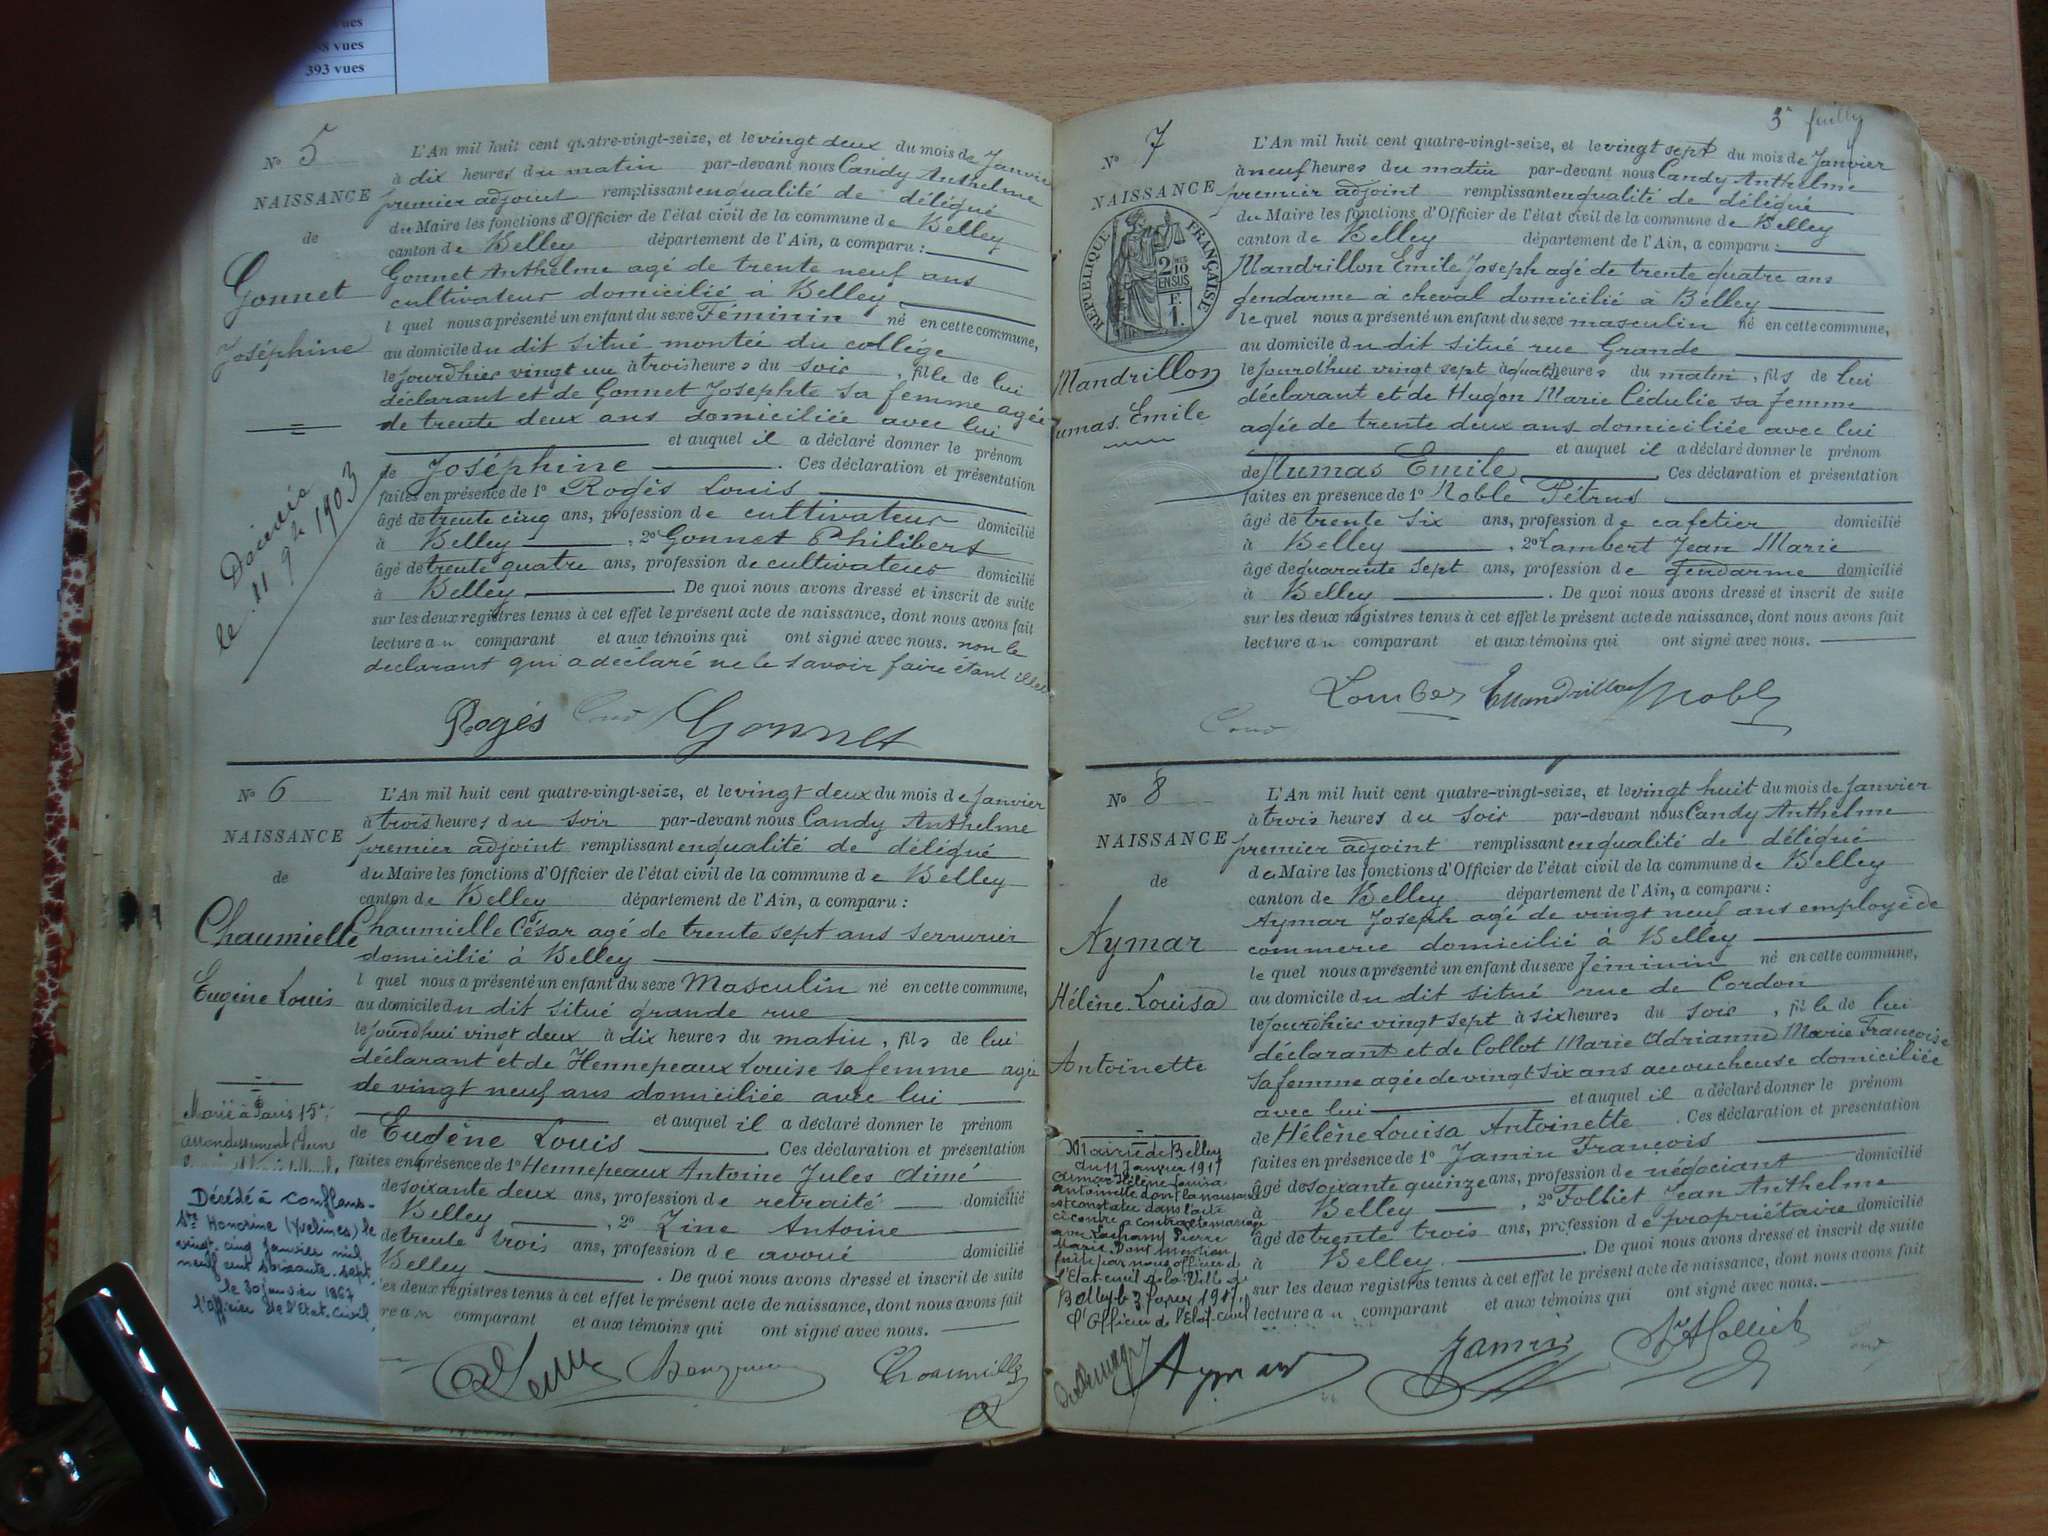 vues
vues
393 vues
No 5
NAISSANCE
de
Gonnet
Joséphine
Décédée
le 11 9bre 1903
L'An mil huit cent quatre-vingt-seize, et le vingt deux du mois de Janvier
à dix heures du matin par-devant nous Candy Anthelme
premier adjoint remplissant en qualité de délégué
du Maire les fonctions d'Officier de l'état civil de la commune de Belley
canton de Belley département de l'Ain, a comparu :
Gonnet Anthelme agé de trente neuf ans
cultivateur domicilié à Belley
l quel nous a présenté un enfant du sexe Féminin né en cette commune,
au domicile du dit situé montée du collége
le jourdhier vingt un à trois heures du soir, fille de lui
déclarant et de Gonnet Josephte sa femme agée
de trente deux ans domiciliée avec lui
et auquel il a déclaré donner le prénom
de Joséphine. Ces déclaration et présentation
faites en présence de 1o Rogès Louis
âgé de trente cinq ans, profession de cultivateur domicilié
à Belley, 2o Gonnet Philibert
âgé de trente quatre ans, profession de cultivateur domicilié
à Belley. De quoi nous avons dressé et inscrit de suite
sur les deux registres tenus à cet effet le présent acte de naissance, dont nous avons fait
lecture au comparant et aux témoins qui ont signé avec nous. non le
declarant qui a déclaré ne le savoir faire étant
Rogès Gonnet
No 6
NAISSANCE
de
Chaumielle
Eugène Louis
Marié à Paris 15e
arrondissement
Décédé à Conflans-
Ste Honorine (Yvelines) le
vingt-cinq Janvier mil
neuf cent soixante-sept.
le 30 janvier 1967
l'officier de l'Etat-Civil,
L'An mil huit cent quatre-vingt-seize, et le vingt deux du mois de Janvier
à trois heures du soir par-devant nous Candy Anthelme
premier adjoint remplissant en qualité de délégué
du Maire les fonctions d'Officier de l'état civil de la commune de Belley
canton de Belley département de l'Ain, a comparu :
Chaumielle César agé de trente sept ans serrurier
domicilié à Belley
l quel nous a présenté un enfant du sexe Masculin né en cette commune,
au domicile du dit situé grande rue
le jourdhui vingt deux à dix heures du matin, fils de lui
déclarant et de Hennepeaux Louise sa femme agée
de vingt neuf ans domiciliée avec lui
et auquel il a déclaré donner le prénom
de Eugène Louis Ces déclaration et présentation
faites en présence de 1o Hennepeaux Antoine Jules Aimé
de soixante deux ans, profession de retraité domicilié
Belley, 2o Zine Antoine
de trente trois ans, profession de avoué domicilié
Belley. De quoi nous avons dressé et inscrit de suite
les deux registres tenus à cet effet le présent acte de naissance, dont nous avons fait
re au comparant et aux témoins qui ont signé avec nous.
Chaumielle
3e feuillet
No 7
NAISSANCE
RÉPUBLIQUE FRANÇAISE
2/10 EN SUS
F. 1.
Mandrillon
Numas Emile
L'An mil huit cent quatre-vingt-seize, et le vingt sept du mois de Janvier
à neuf heures du matin par-devant nous Candy Anthelme
premier adjoint remplissant en qualité de délégué
du Maire les fonctions d'Officier de l'état civil de la commune de Belley
canton de Belley département de l'Ain, a comparu :
Mandrillon Emile Joseph agé de trente quatre ans
gendarme à cheval domicilié à Belley
le quel nous a présenté un enfant du sexe masculin né en cette commune,
au domicile du dit situé rue Grande
le jourdhui vingt sept à quatre heures du matin, fils de lui
déclarant et de Hugon Marie Cédulie sa femme
agée de trente deux ans domiciliée avec lui
et auquel il a déclaré donner le prénom
de Numas Emile. Ces déclaration et présentation
faites en présence de 1o Noble Pétrus
âgé de trente six ans, profession de cafetier domicilié
à Belley, 2o Lambert Jean Marie
âgé de quarante sept ans, profession de gendarme domicilié
à Belley. De quoi nous avons dressé et inscrit de suite
sur les deux registres tenus à cet effet le présent acte de naissance, dont nous avons fait
lecture au comparant et aux témoins qui ont signé avec nous.
Lambert Mandrillon Noble
No 8
NAISSANCE
de
Aymar
Hélène Louisa
Antoinette
Mairie de Belley
du 11 Janvier 1917
Aimar Hélène Louisa
Antoinette dont la naissance
est constatée dans l'acte
ci contre a contracté mariage
avec Pierre
Marie. Dont mention
faite par nous officier de
l'Etat-civil de la Ville de
Belley le 3 1917.
L'Officier de l'Etat-civil
L'An mil huit cent quatre-vingt-seize, et le vingt huit du mois de Janvier
à trois heures du soir par-devant nous Candy Anthelme
premier adjoint remplissant en qualité de délégué
du Maire les fonctions d'Officier de l'état civil de la commune de Belley
canton de Belley département de l'Ain, a comparu :
Aymar Joseph agé de vingt neuf ans employé de
commerce domicilié à Belley
le quel nous a présenté un enfant du sexe féminin né en cette commune,
au domicile du dit situé rue de Cordon
le jourdhier vingt sept à six heures du soir, fille de lui
déclarant et de Collot Marie Adrianne Marie Françoise
sa femme agée de vingt six ans accoucheuse domiciliée
avec lui et auquel il a déclaré donner le prénom
de Hélène Louisa Antoinette. Ces déclaration et présentation
faites en présence de 1o Jamin François
âgé de soixante quinze ans, profession de négociant domicilié
à Belley, 2o Folliet Jean Anthelme
âgé de trente trois ans, profession de propriétaire domicilié
à Belley. De quoi nous avons dressé et inscrit de suite
sur les deux registres tenus à cet effet le présent acte de naissance, dont nous avons fait
lecture au comparant et aux témoins qui ont signé avec nous.
Aymar Jamin Folliet